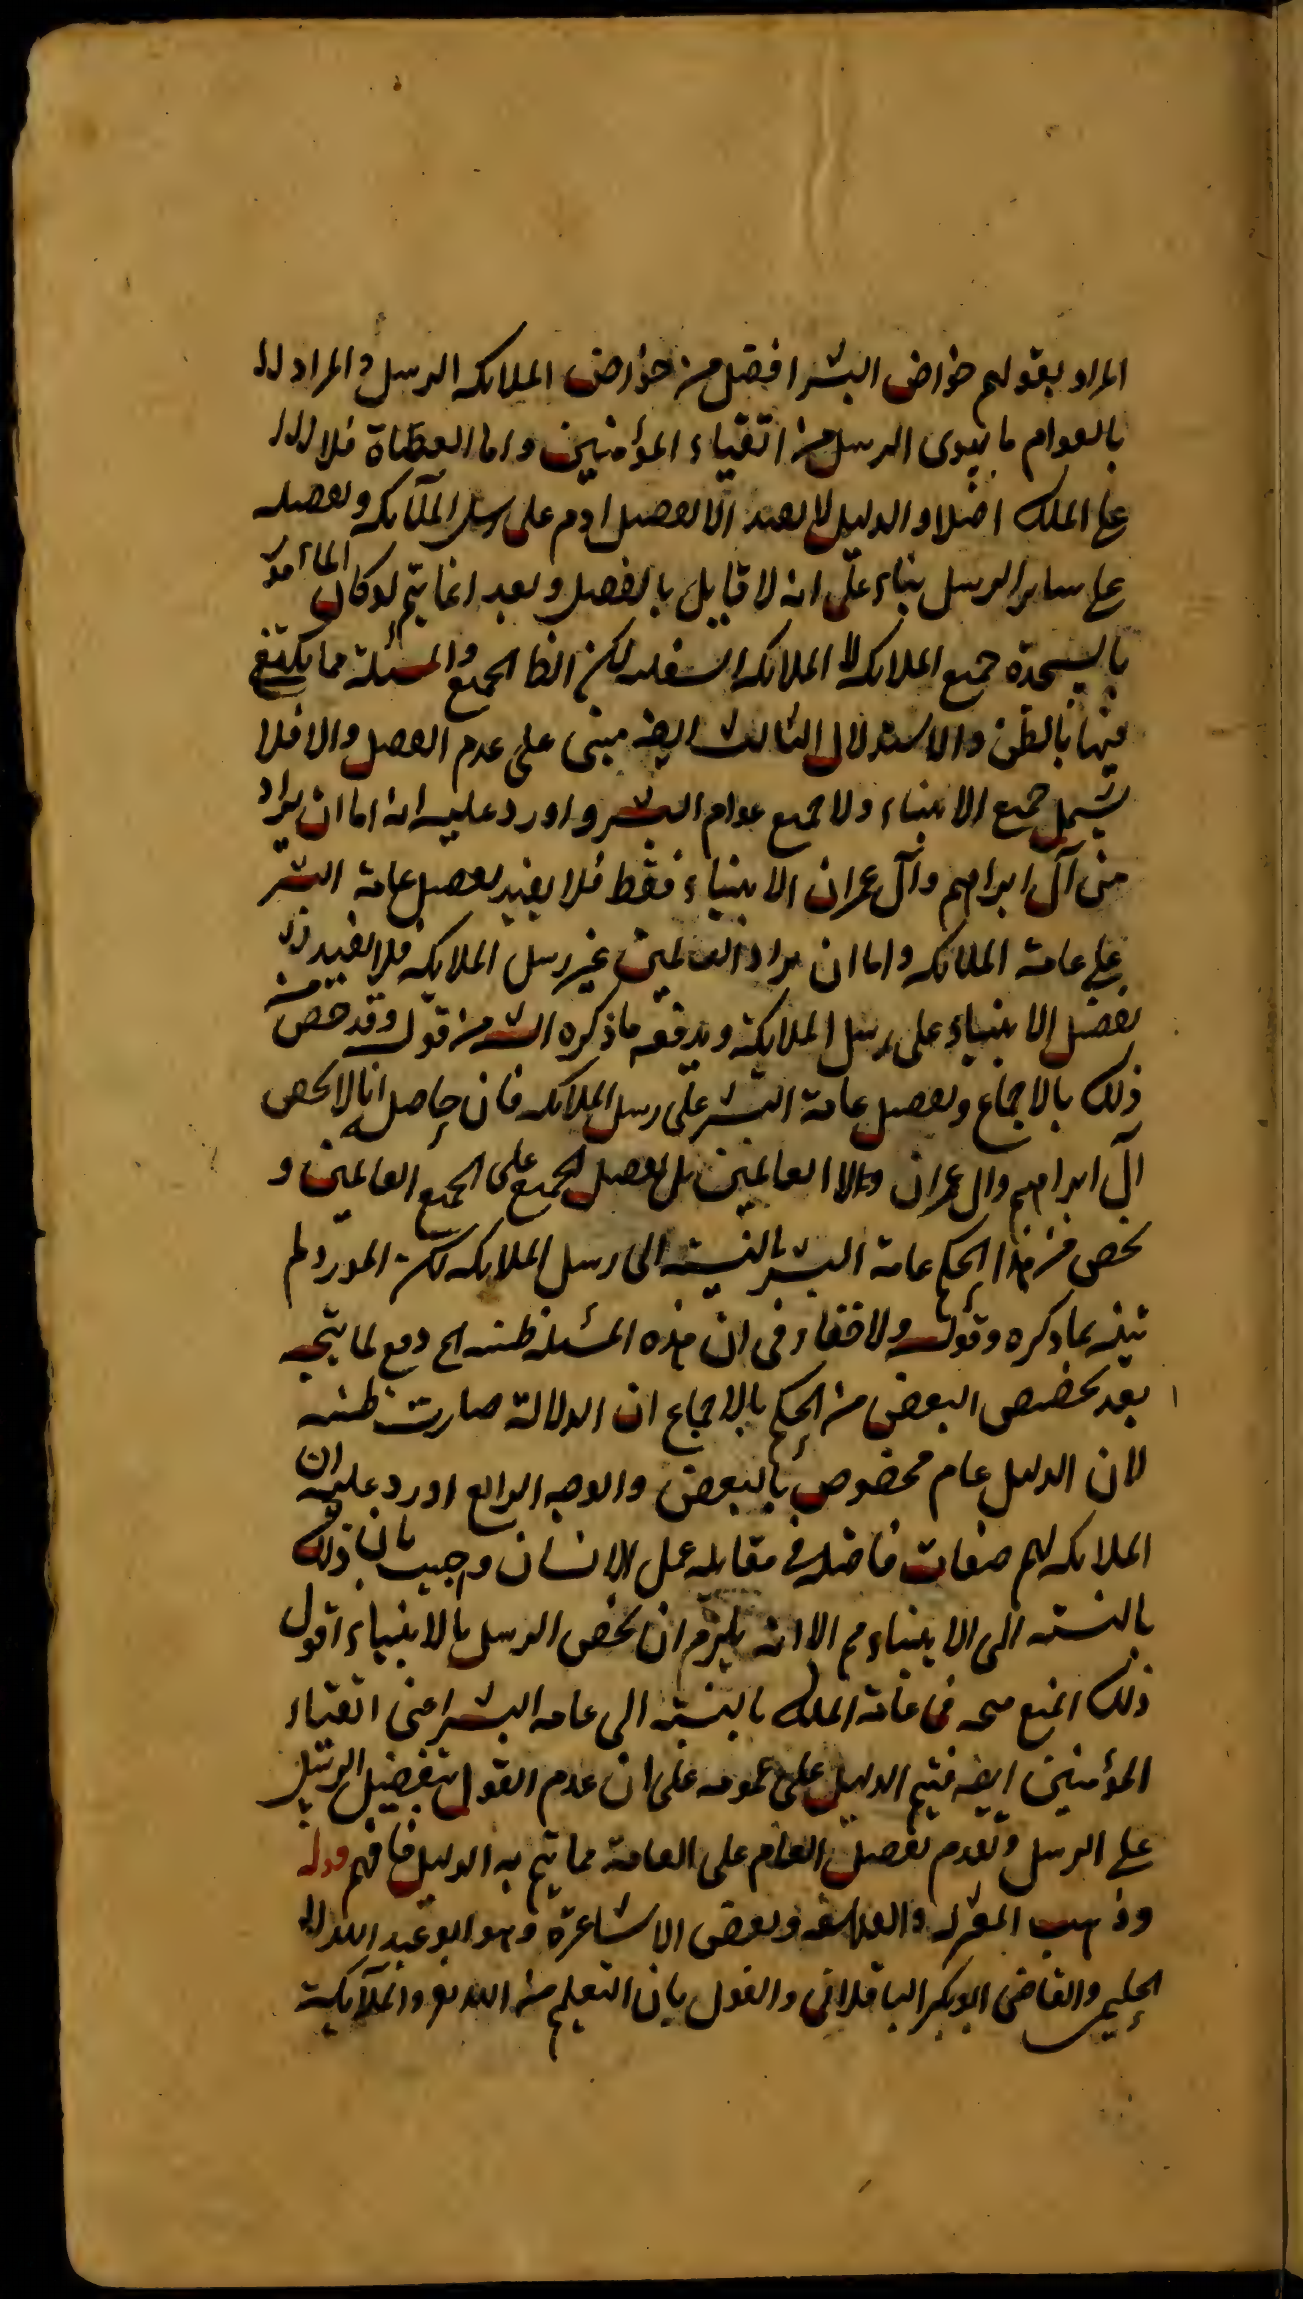 المراد بقولهم خواص البشر افضل من خواص الملائكه الرسل والمراد
بالعوام ما سوى الرسل من اتقياء المؤمنين واما العصاة فلا
على الملك اصلا والدليل لا يفيد الا تفضيل ادم على رسل الملآئكه وتفضيله
على ساير الرسل بناء على انه لا قايل بالفصل وبعد انما يتم لو كان المامور
بالسجدة جميع الملائكه لا الملائكه السفليه لكن الظا الجميع والمسئلة مما يكتفى
فيها بالظن والاستدلال الثالث ايضه مبنى على عدم الفصل والا فلا
يشمل جميع الانبياء ولا جميع عوام البشر واورد عليه انه اما ان يراد
من آل ابراهيم وآل عمران الانبياء فقط فلا يفيد تفضيل عامة البشر
على عامة الملائكه واما ان يراد العالمين غير رسل الملايكه فلا يفيد
تفضيل الانبياء على رسل الملايكة ويدفعه ما ذكره الشه من قوله وقد خص من
ذلك بالاجماع وتفضيل عامة البشر على رسل الملائكه فان حاصله انا لا نخص
آل ابراهيم وال عمران ولا العالمين بل نفضل الجميع على الجميع العالمين و
نخص من هذا الحكم عامة البشر بالنسبته الى رسل الملايكه لكن المورد لم
يتنبه بما ذكره وقوله ولا خفاء فى ان هذه المسئله ظنيه الخ دفع لما يتجه
بعد تخصيص البعض من الحكم بالاجماع ان الدلالة صارت ظنيه
لان الدليل عام مخصوص بالبعض والوجه الرابع اورد عليه ان
الملائكه لهم صفات فاضله فى مقابله عمل الانسان وجيب بان ذلك
بالنسبته الى الانبياء مم الا انه يلزم ان يخص الرسل بالانبياء اقول
ذلك المنع متجه فى عامة الملك بالنسبته الى عامه البشر اعنى اتقياء
المؤمنين ايضه فيتم الدليل على عمومه على ان عدم القول بتفضيل الرسل
على الرسل وبعدم تفضيل العام على العامة مما يتم به الدليل فافهم قوله
وذهب المعتزله والفلاسفه وبعض الاشاعرة وهو ابو عبد الله
الحليمى والقاضى ابو بكر الباقلانى والقول بان التعليم من الله تع والملآئكة